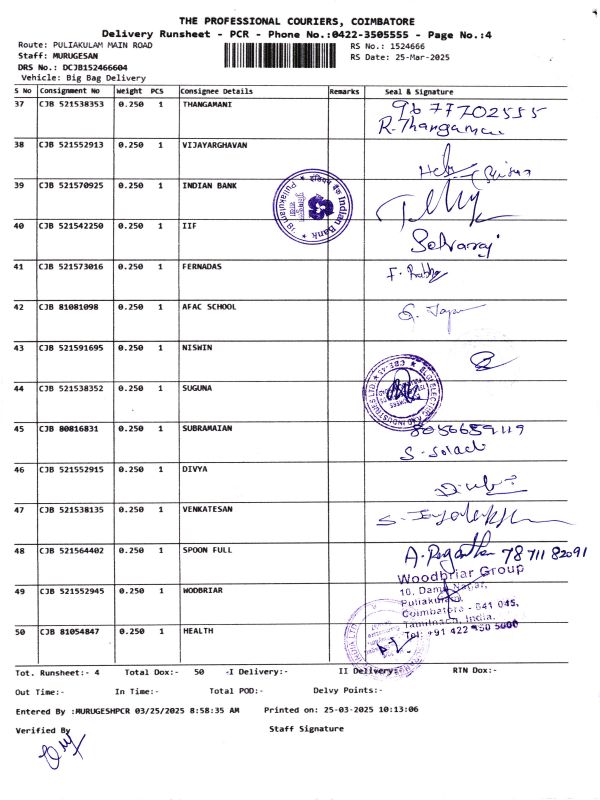 THE PROFESSIONAL COURIERS, COIMBATORE
Delivery Runsheet - PCR - Phone No.:0422-3505555 - Page No.:4
Route: PULIAKULAM MAIN ROAD RS No.: 1524666
Staff: MURUGESAN RS Date: 25-Mar-2025
DRS No.: DCJB152466604
Vehicle: Big Bag Delivery
S No Consignment No Weight PCS Consignee Details Remarks Seal & Signature
37 CJB 521538353 0.250 1 THANGAMANI 9677702555
R.Thangamani
38 CJB 521552913 0.250 1 VIJAYARGHAVAN
39 CJB 521570925 0.250 1 INDIAN BANK Indian Bank
40 CJB 521542250 0.250 1 IIF Selvaraj
41 CJB 521573016 0.250 1 FERNADAS F. Prabhu
42 CJB 81081098 0.250 1 AFAC SCHOOL
43 CJB 521591695 0.250 1 NISWIN
44 CJB 521538352 0.250 1 SUGUNA
45 CJB 80816831 0.250 1 SUBRAMAIAN 8056659119
46 CJB 521552915 0.250 1 DIVYA
47 CJB 521538135 0.250 1 VENKATESAN
48 CJB 521564402 0.250 1 SPOON FULL 7871182091
49 CJB 521552945 0.250 1 WODBRIAR Woodbriar Group
10, Damu Nagar,
Puliakulam,
Coimbatore - 641 045,
Tamilnadu, India.
50 CJB 81054847 0.250 1 HEALTH Tel: +91 422 450 5000
Tot. Runsheet:- 4 Total Dox:- 50 -I Delivery:- II Delivery:- RTN Dox:-
Out Time:- In Time:- Total POD:- Delvy Points:-
Entered By :MURUGESHPCR 03/25/2025 8:58:35 AM Printed on: 25-03-2025 10:13:06
Verified By Staff Signature